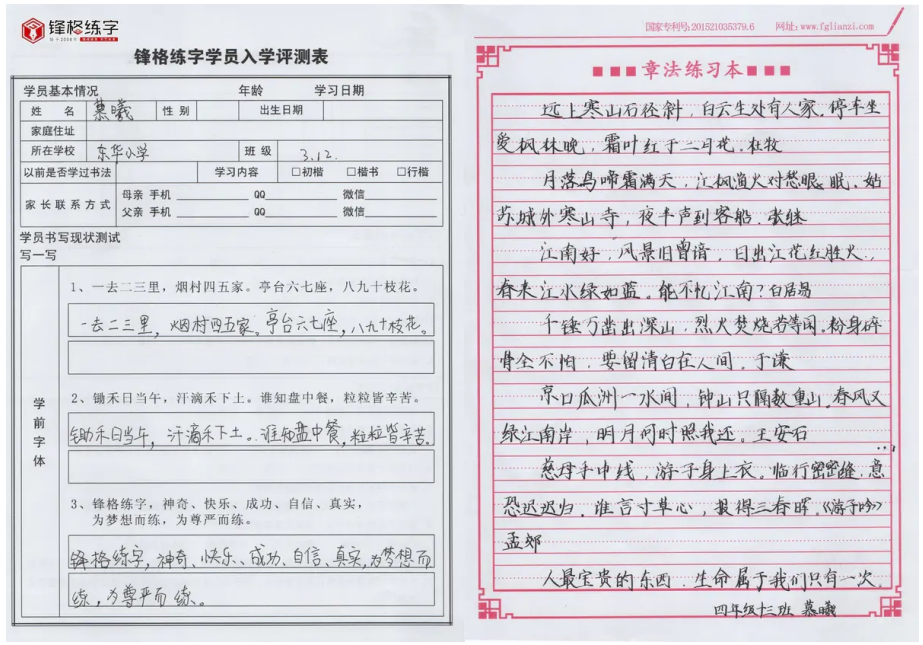 锋格练字
锋格练字学员入学评测表
学员基本情况 年龄 学习日期
姓 名 慕曦 性 别 出生日期
家庭住址
所在学校 东华小学 班 级 3.12.
以前是否学过书法 学习内容 □初楷 □楷书 □行楷
家 长 联 系 方 式
母亲 手机 QQ 微信
父亲 手机 QQ 微信
学员书写现状测试
写一写
学前字体
1、一去二三里，烟村四五家。亭台六七座，八九十枝花。
一去二三里，烟村四五家。亭台六七座，八九十枝花。
2、锄禾日当午，汗滴禾下土。谁知盘中餐，粒粒皆辛苦。
锄禾日当午，汗滴禾下土。谁知盘中餐，粒粒皆辛苦。
3、锋格练字，神奇、快乐、成功、自信、真实，
为梦想而练，为尊严而练。
锋格练字，神奇、快乐、成功、自信、真实，为梦想而
练，为尊严而练。
国家专利号：201521035379.6 网址：www.fglianxi.com
章法练习本
远上寒山石径斜，白云生处有人家。停车坐
爱枫林晚，霜叶红于二月花。杜牧
月落乌啼霜满天，江枫渔火对愁眠。眠，姑
苏城外寒山寺，夜半声到客船。张继
江南好，风景旧曾谙，日出江花红胜火，
春来江水绿如蓝。能不忆江南？白居易
千锤万凿出深山，烈火焚烧若等闲。粉身碎
骨全不怕，要留清白在人间，于谦
京口瓜洲一水间，钟山只隔数重山。春风又
绿江南岸，明月何时照我还。王安石
慈母手中线，游子身上衣。临行密密缝，意
恐迟迟归，谁言寸草心，报得三春晖。《游子吟》
孟郊
人最宝贵的东西，生命属于我们只有一次，
四年级十三班 慕曦